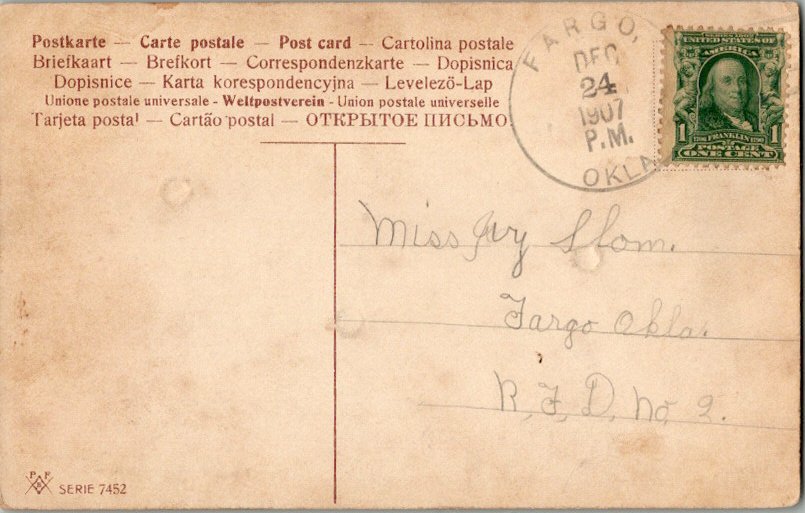 Postkarte — Carte postale — Post card — Cartolina postale
Briefkaart — Brefkort — Correspondenzkarte — Dopisnica
Dopisnice — Karta korespondencyjna — Levelezö-Lap
Unione postale universale - Weltpostverein - Union postale universelle
Tarjeta postal — Cartão postal — ОТКРЫТОЕ ПИСЬМО
FARGO,
DEC
24
1907
P.M.
OKLA
SERIES 1902
UNITED STATES OF
AMERICA
1 FRANKLIN 1
POSTAGE
ONE CENT
Miss Slom.
Fargo Okla.
R. F. D. No 2.
P F
B
SERIE 7452